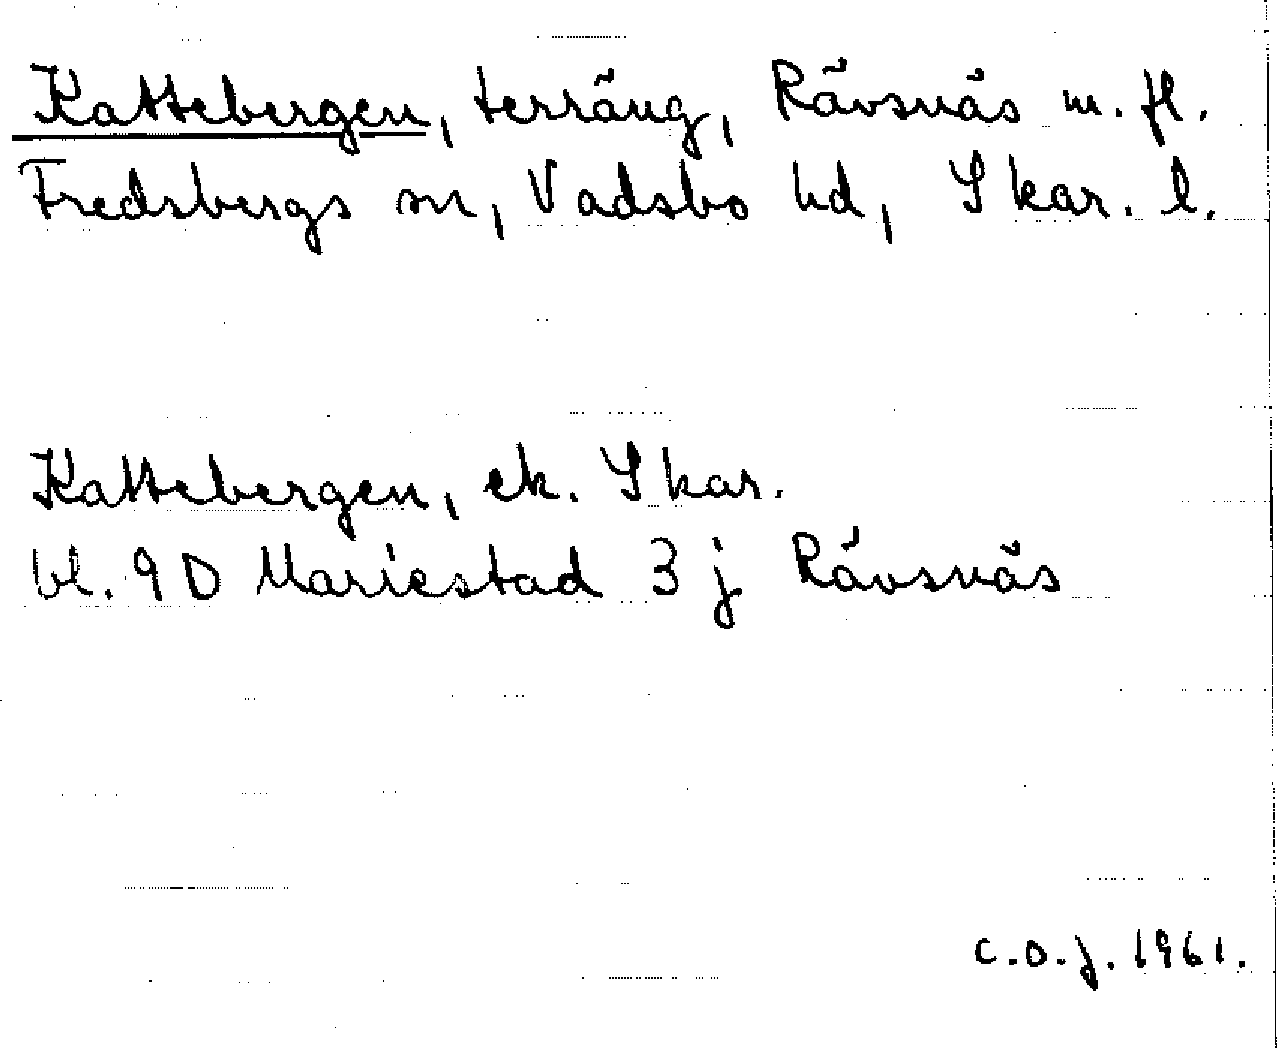 Kattebergen, terräng, Rävsnäs m. fl.
Fredsbergs sn, Vadsbo hd, Skar. l.
Kattebergen, ek. Skar.
bl. 9D Mariestad 3 j Rävsnäs
C.O.J. 1961.